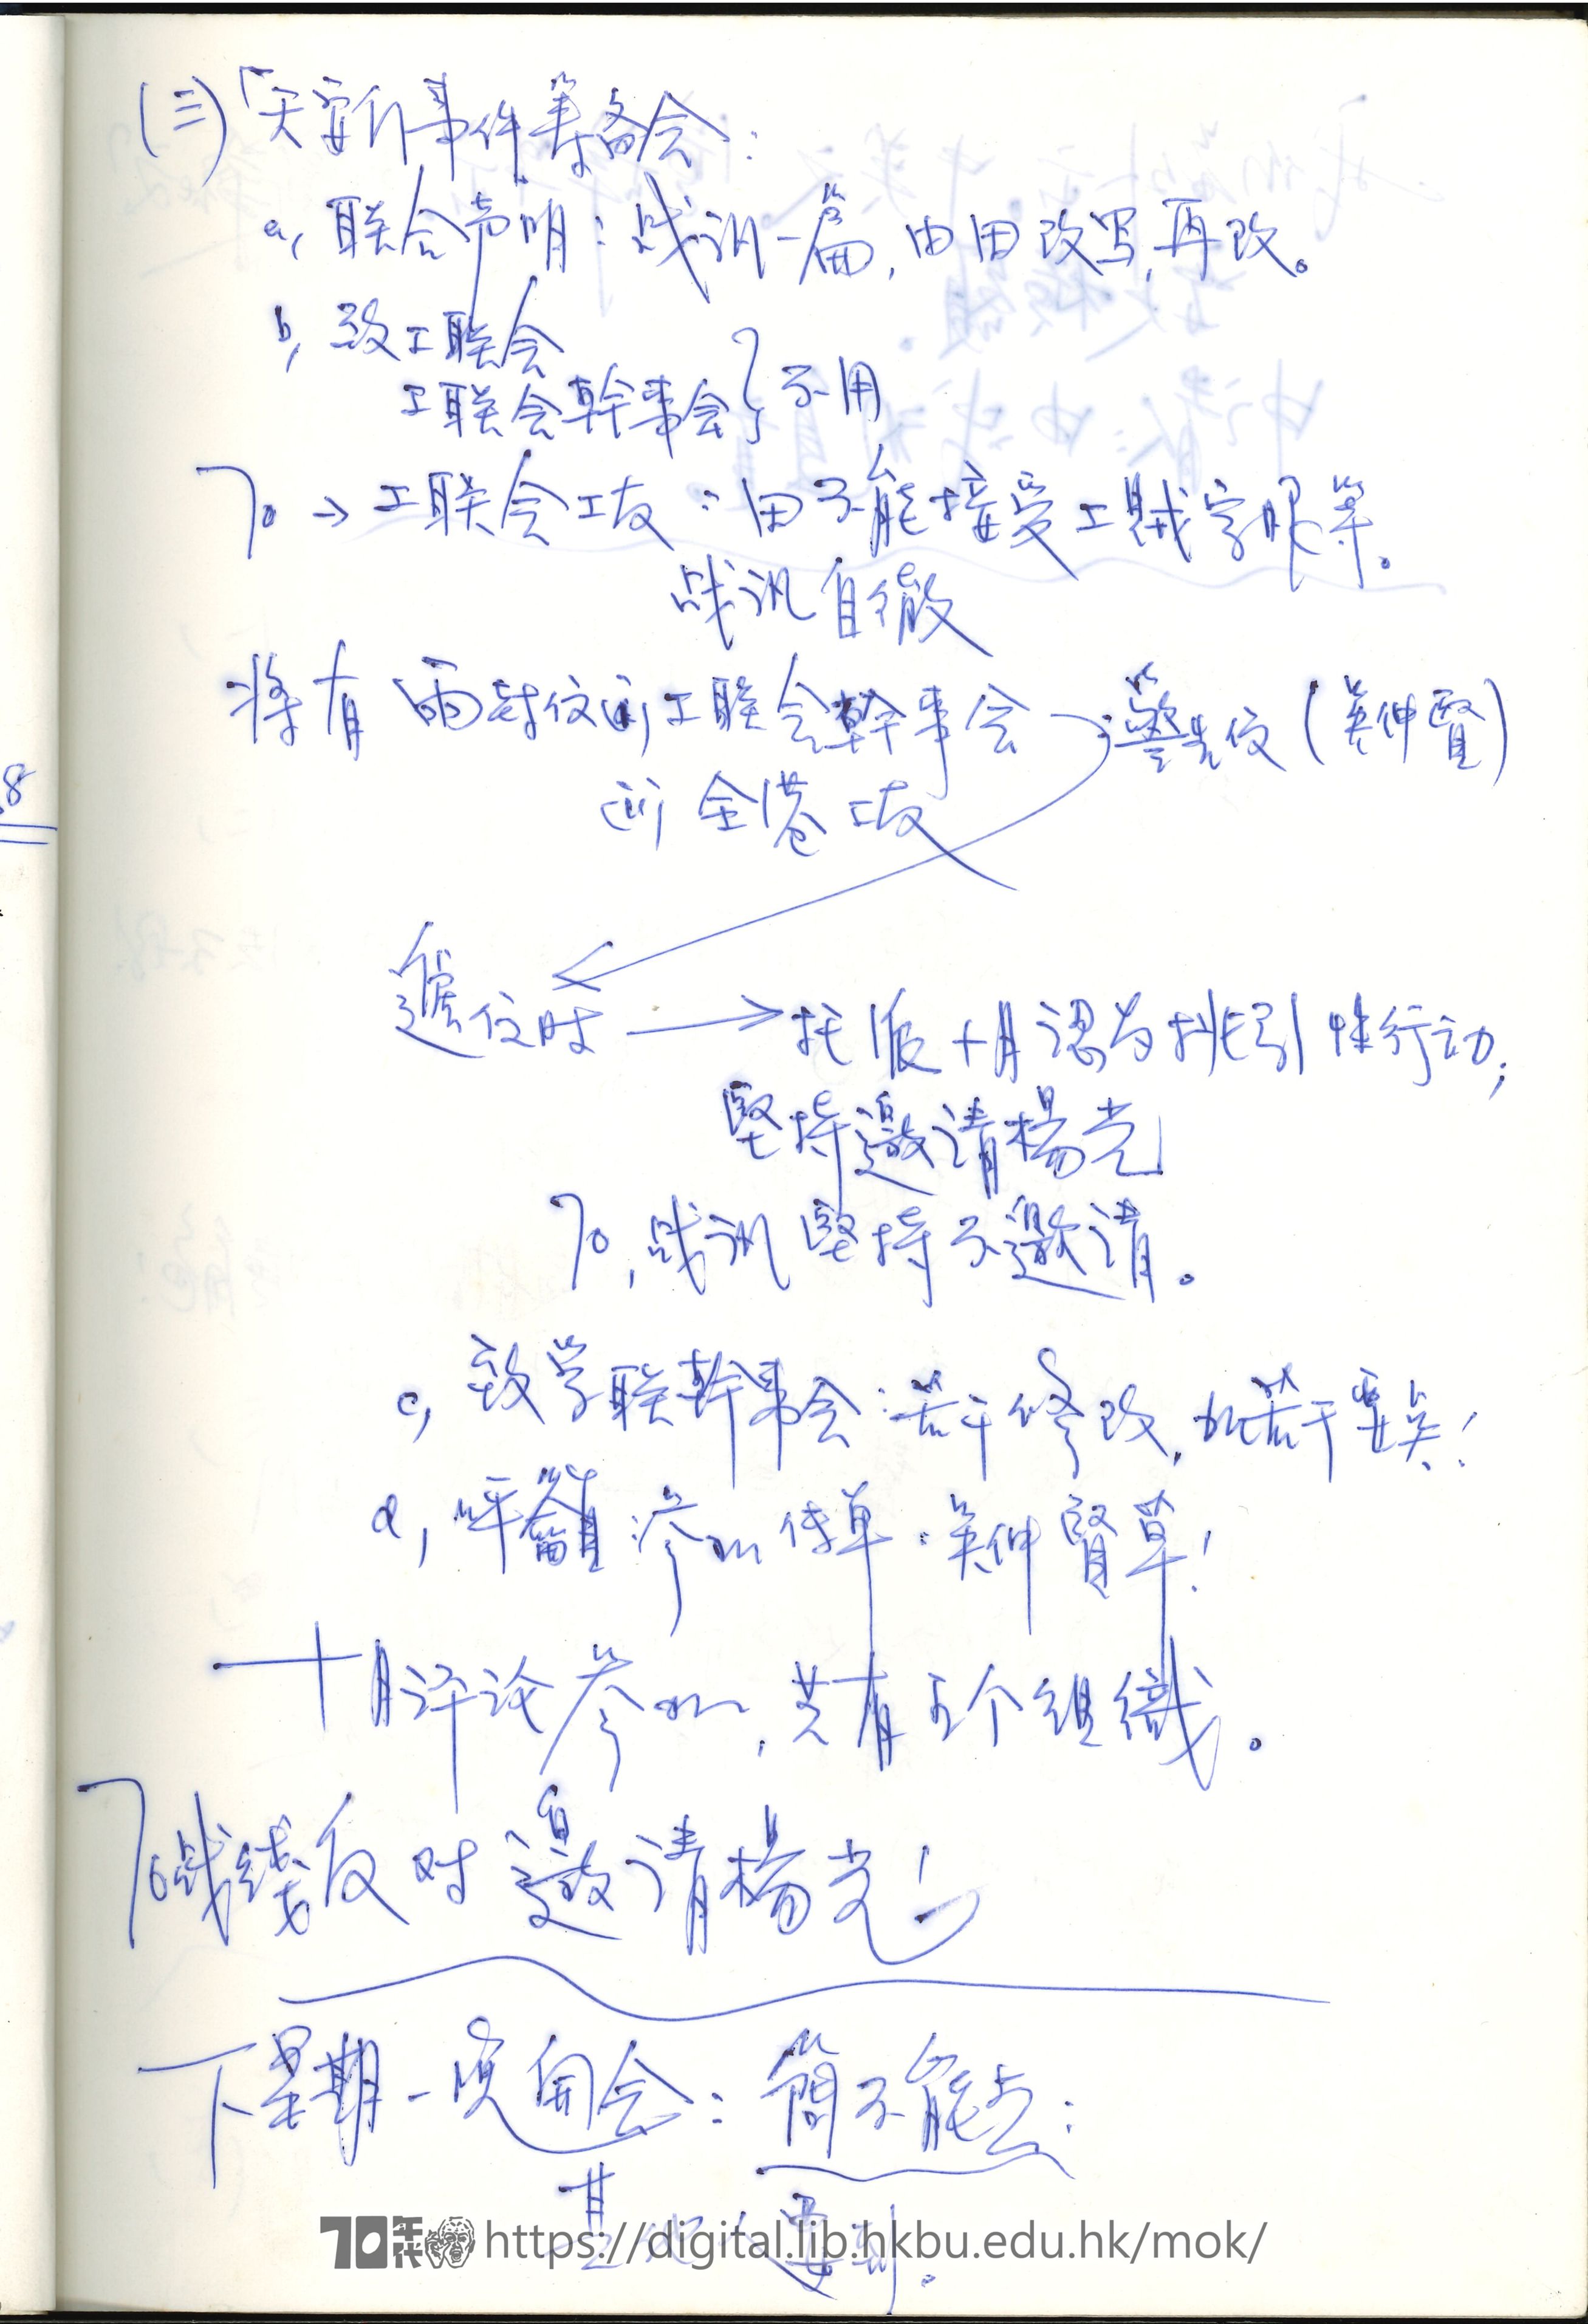 (三)「天安门事件筹备会:
a, 联合声明:战讯一篇,由田改写,再改。
b, 致工联会
工联会幹事会 } 不用
70 → 工联会工友:田不能接受工贼字眼等。
战讯自撤
将有两封信 (i) 工联会幹事会
(ii) 全港工友
(吴仲賢)
信时 → 托派十月認为挑引性行动;
堅持邀请楊光
70, 战讯堅持不邀请。
c, 致学联幹事会:若干修改,加若干要点!
d, 呼籲参加传单:吴仲賢草!
十月评论参加,共有五个组織。
70战线反对邀请楊光!
下星期一晚開会:簡不能去:
其他人要到。
8
70年代 https://digital.lib.hkbu.edu.hk/mok/